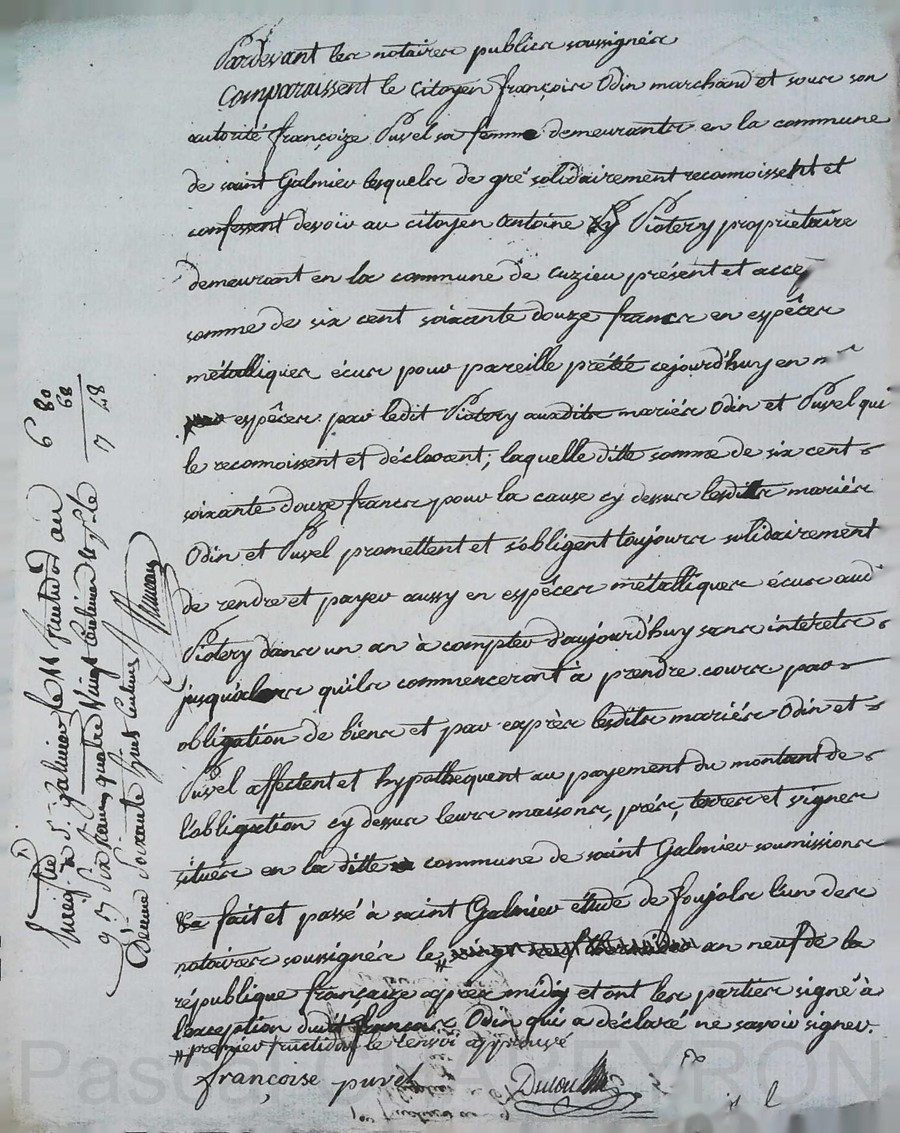 Pardevant les notaires publics soussignés
Comparaissent le citoyen françois Odin marchand et sous son
autorité françoize Puvel sa femme demeurants en la commune
de saint Galmier lesquels de gré solidairement reconnoissent et
confessent devoir au citoyen antoine Piotery propriétaire
demeurant en la commune de cuzieu présent et accep
somme de six cent soixante douze francs en espêces
métalliques écus pour pareille prêtée cejourd'huy en
espêces par ledit Piotery auxdits mariés Odin et Puvel qui
le reconnoissent et déclarent, laquelle ditte somme de six cent
soixante douze francs pour la cause cy dessus lesdits mariés
Odin et Puvel promettent et s'obligent toujours solidairement
de rendre et payer aussy en espéces métalliques écus aud
Piotery dans un an à compter d'aujourd'huy sans intérêts
jusqu'alors qu'ils commenceront à prendre cours par
obligation de biens et par exprès lesdits mariés Odin et
Puvel affectent et hypothequent au payement du montant de
l'obligation cy dessus leurs maisons, prés, terres et vignes
situés en la ditte commune de saint Galmier soumissions
fait et passé à saint Galmier étude de foujols l'un des
notaires soussignés le # an neuf de la
république française après midy et ont les parties signé à
l'exception dudit françois Odin qui a déclaré ne savoir signer.
# premier fructidor le renvoi approuvé
francoise puvel
Enregistré à S. Galmier le 11 fructidor an
9 Six francs quatre Vingt Centimes
Soixante huit Centimes
6 80
68
7 48
Pascal CHALEYRON